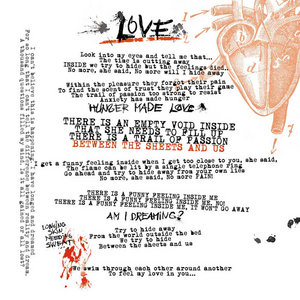 LOVE
Look into my eyes and tell me that...
The time is cutting away
INSIDE we try to hide but the feelings died..
No more, she said, No more will I hide away
Within the pleasure they forget their pain
To find the scent of trust they play their game
The trail of passion too strong to resist
Anxiety has made hunger
HUNGER MADE LOVE
THERE IS AN EMPTY VOID INSIDE
THAT SHE NEEDS TO FILL UP
THERE IS A TRAIL OF PASSION
BETWEEN THE SHEETS AND US
get a funny feeling inside when I get too close to you, she said,
The flame can be lit by a single telephone ring
Go ahead and try to hide away from your own lies
No more, she said, NO more PAIN!
THERE IS A FUNNY FEELING INSIDE ME
THERE IS A FUNNY FEELING INSIDE ME, NO!
THERE IS A FUNNY FEELING INSIDE ME, IT WON'T GO AWAY
AM I DREAMING?
Try to hide away
From the world outside the bed
We try to hide
Between the sheets and us
LONGING
SKIN
NEEDING
SWEAT
We swim through each other around another
To feel my love in you...